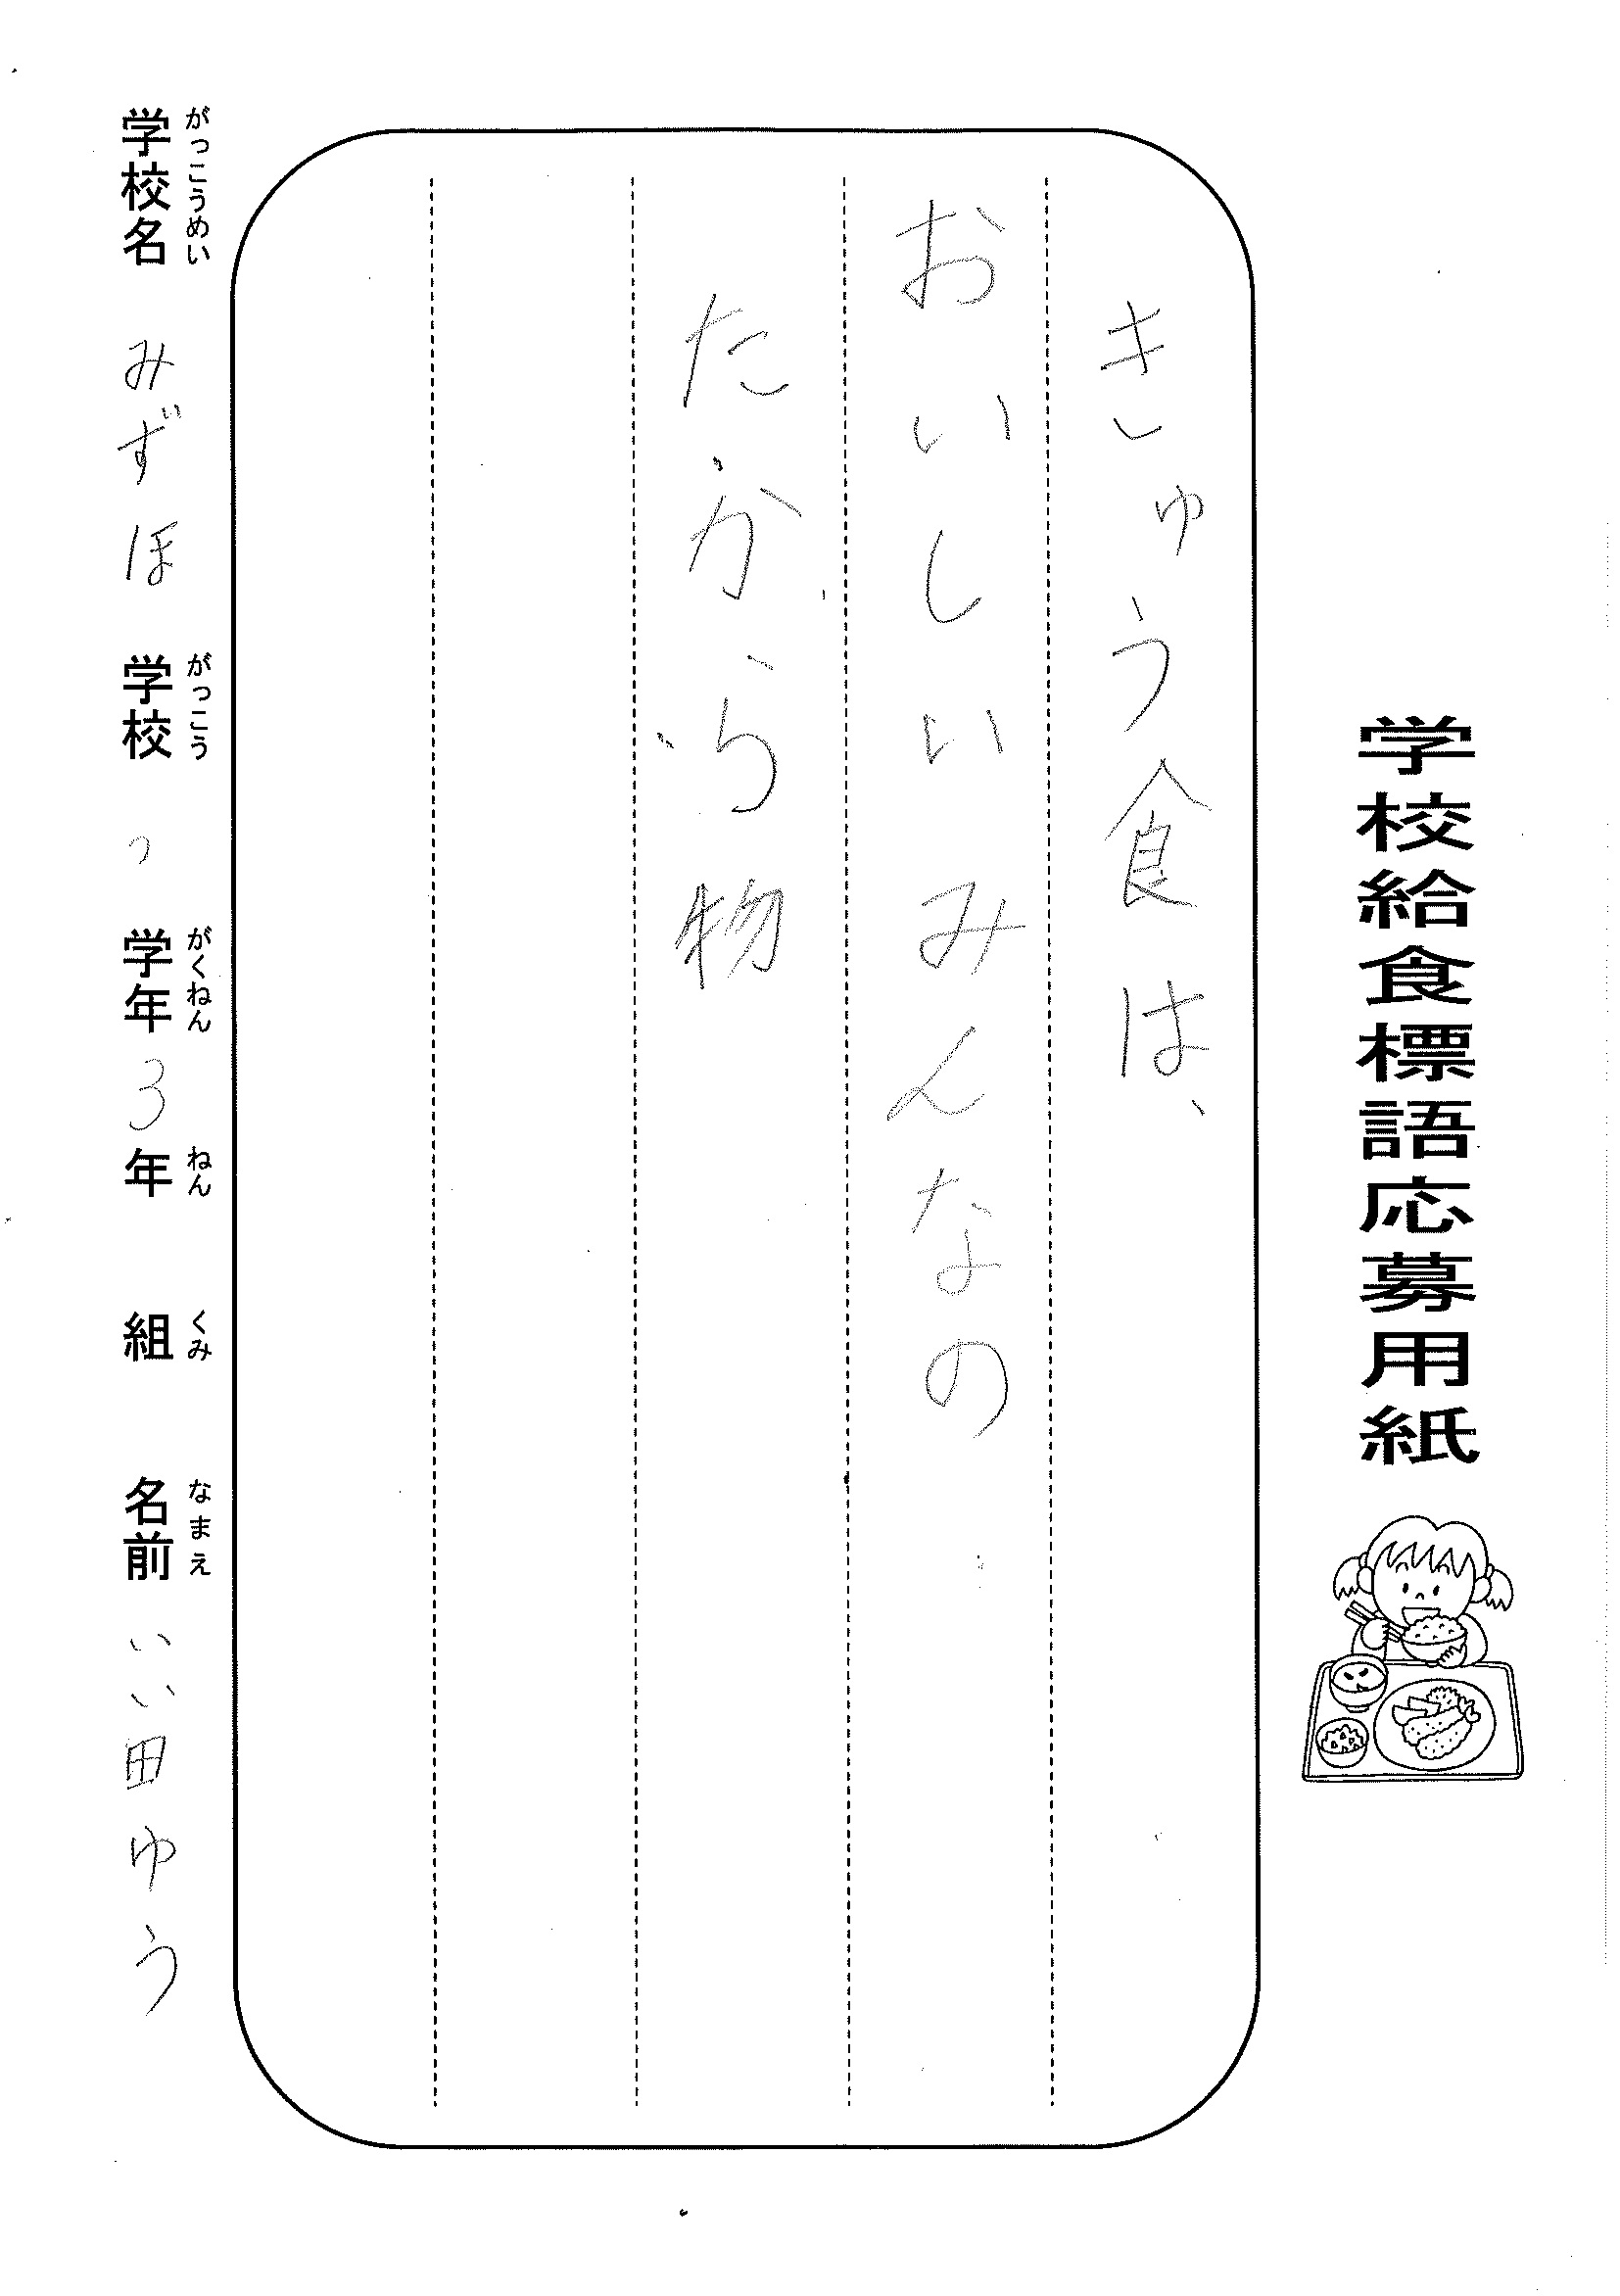 学校給食標語応募用紙
きゅう食は、
おいしいみんなの
たから物
がっこうめい がっこう がくねん ねん くみ なまえ
学校名 みずほ 学校 学年 3年 組 名前 いい田ゆう